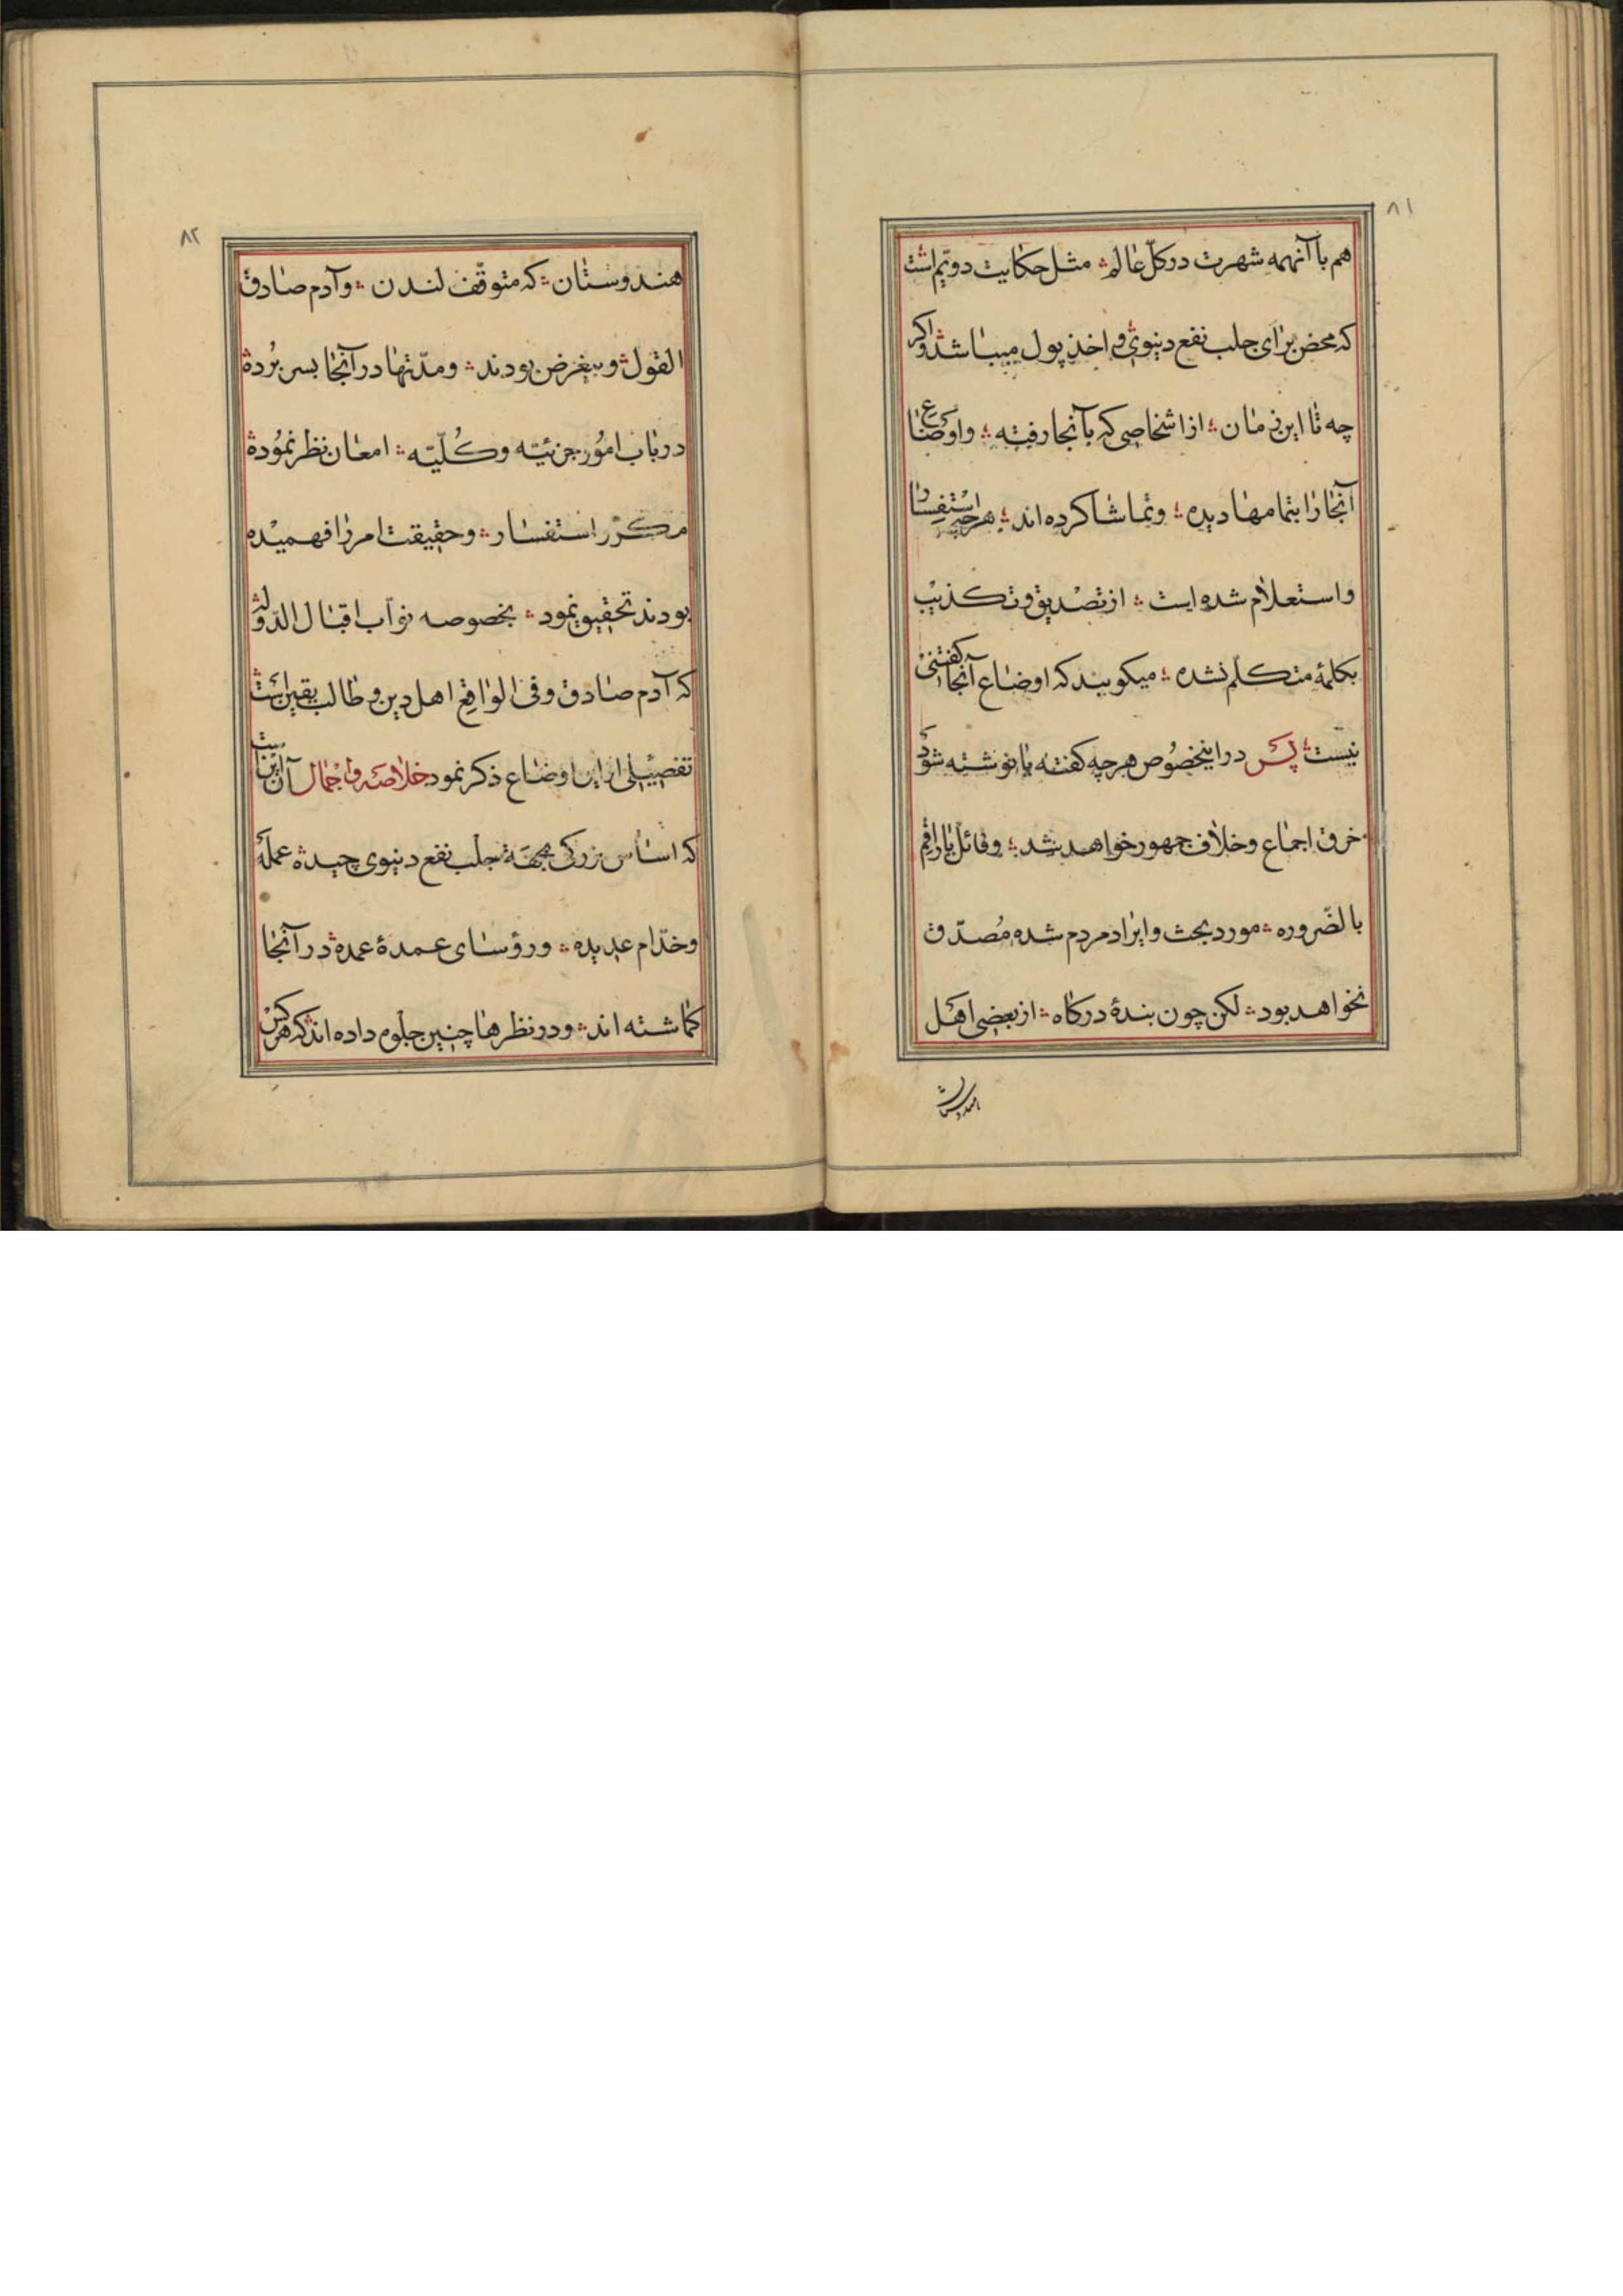 ۸۱
هم با آنهمه شهرت در کلّ عالم مثل حکایت دویّم است
که محض برای جلب نفع دنیوی و اخذ پول میباشد و اکر
چه تا این زمان از اشخاصی که بآنجا رفته و اوضاع
آنجا را بتمامها دیده و تماشا کرده اند هرچه استفسار
و استعلام شده است از تصدیق و تکذیب
بکلمهٔ متکلّم نشده میکویند که اوضاع آنجا کفتنی
نیست پس در اینخصوص هرچه کفته یا نوشته شود
خرق اجماع و خلاف جمهور خواهد شد و قائل یا راقم
بالضّروره مورد بحث و ایراد مردم شده مُصدّق
نخواهد بود لکن چون بندهٔ درکاه از بعضی اهل
هندوستان
۸۲
هندوستان که متوقّف لندن و آدم صادق
القول و بیغرض بودند و مدّتها در آنجا بسر بُرده
در باب امُور جزئیّه و کُلّیّه امعان نظر نمُوده
مکرّر استفسار و حقیقت امر را فهمیده
بودند تحقیق نمود بخصوصه نوّاب اقبال الدّوله
که آدم صادق و فی الواقع اهل دین و طالب یقین است
تفصیلی از این اوضاع ذکر نمود خلاصه و اجمال آن اینست
که اساس بزرکی بجهة جلب نفع دنیوی چیده عملهٔ
و خدّام عدیده و رؤسای عمدهٔ عمده در آنجا
کماشته اند و در نظرها چنین جلوه داده اند که هرکس